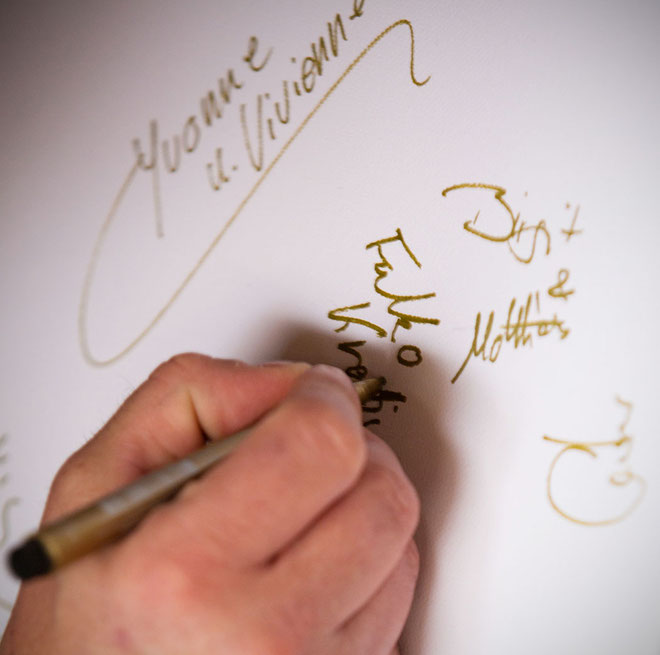 Yvonne
u. Vivionne
Birgit
&
Matthias
Falko